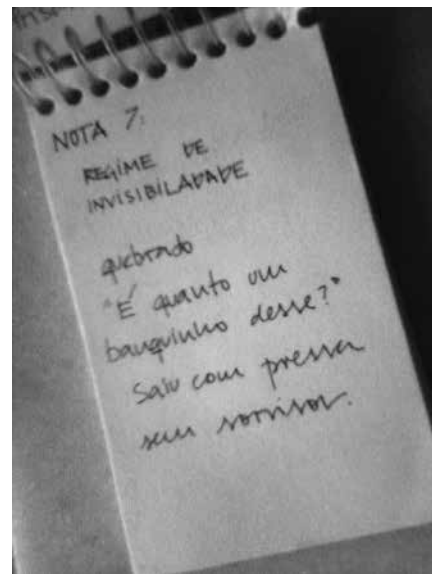 NOTA 7:
REGIME DE
INVISIBILADADE
quebrado
"É quanto um
banquinho desse?"
Saiu com pressa
sem sorrisos.